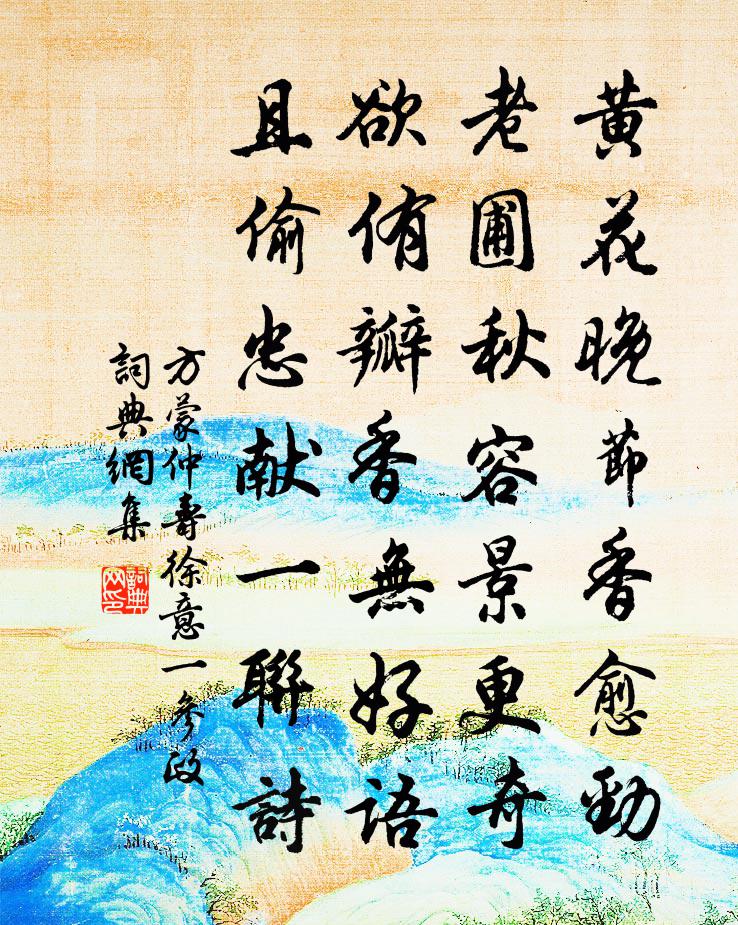 黄花晚節香愈勁
老圃秋容景更奇
欲侑瓣香無好語
且偷忠献一聯詩
方蒙仲壽徐意一參政
詞典網集
詞典网印